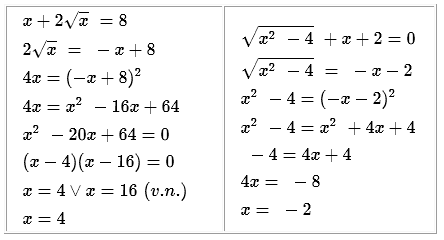 x + 2√x = 8
2√x = −x + 8
4x = (−x + 8)²
4x = x² − 16x + 64
x² − 20x + 64 = 0
(x − 4)(x − 16) = 0
x = 4 ∨ x = 16 (v.n.)
x = 4
√(x² − 4) + x + 2 = 0
√(x² − 4) = −x − 2
x² − 4 = (−x − 2)²
x² − 4 = x² + 4x + 4
−4 = 4x + 4
4x = −8
x = −2